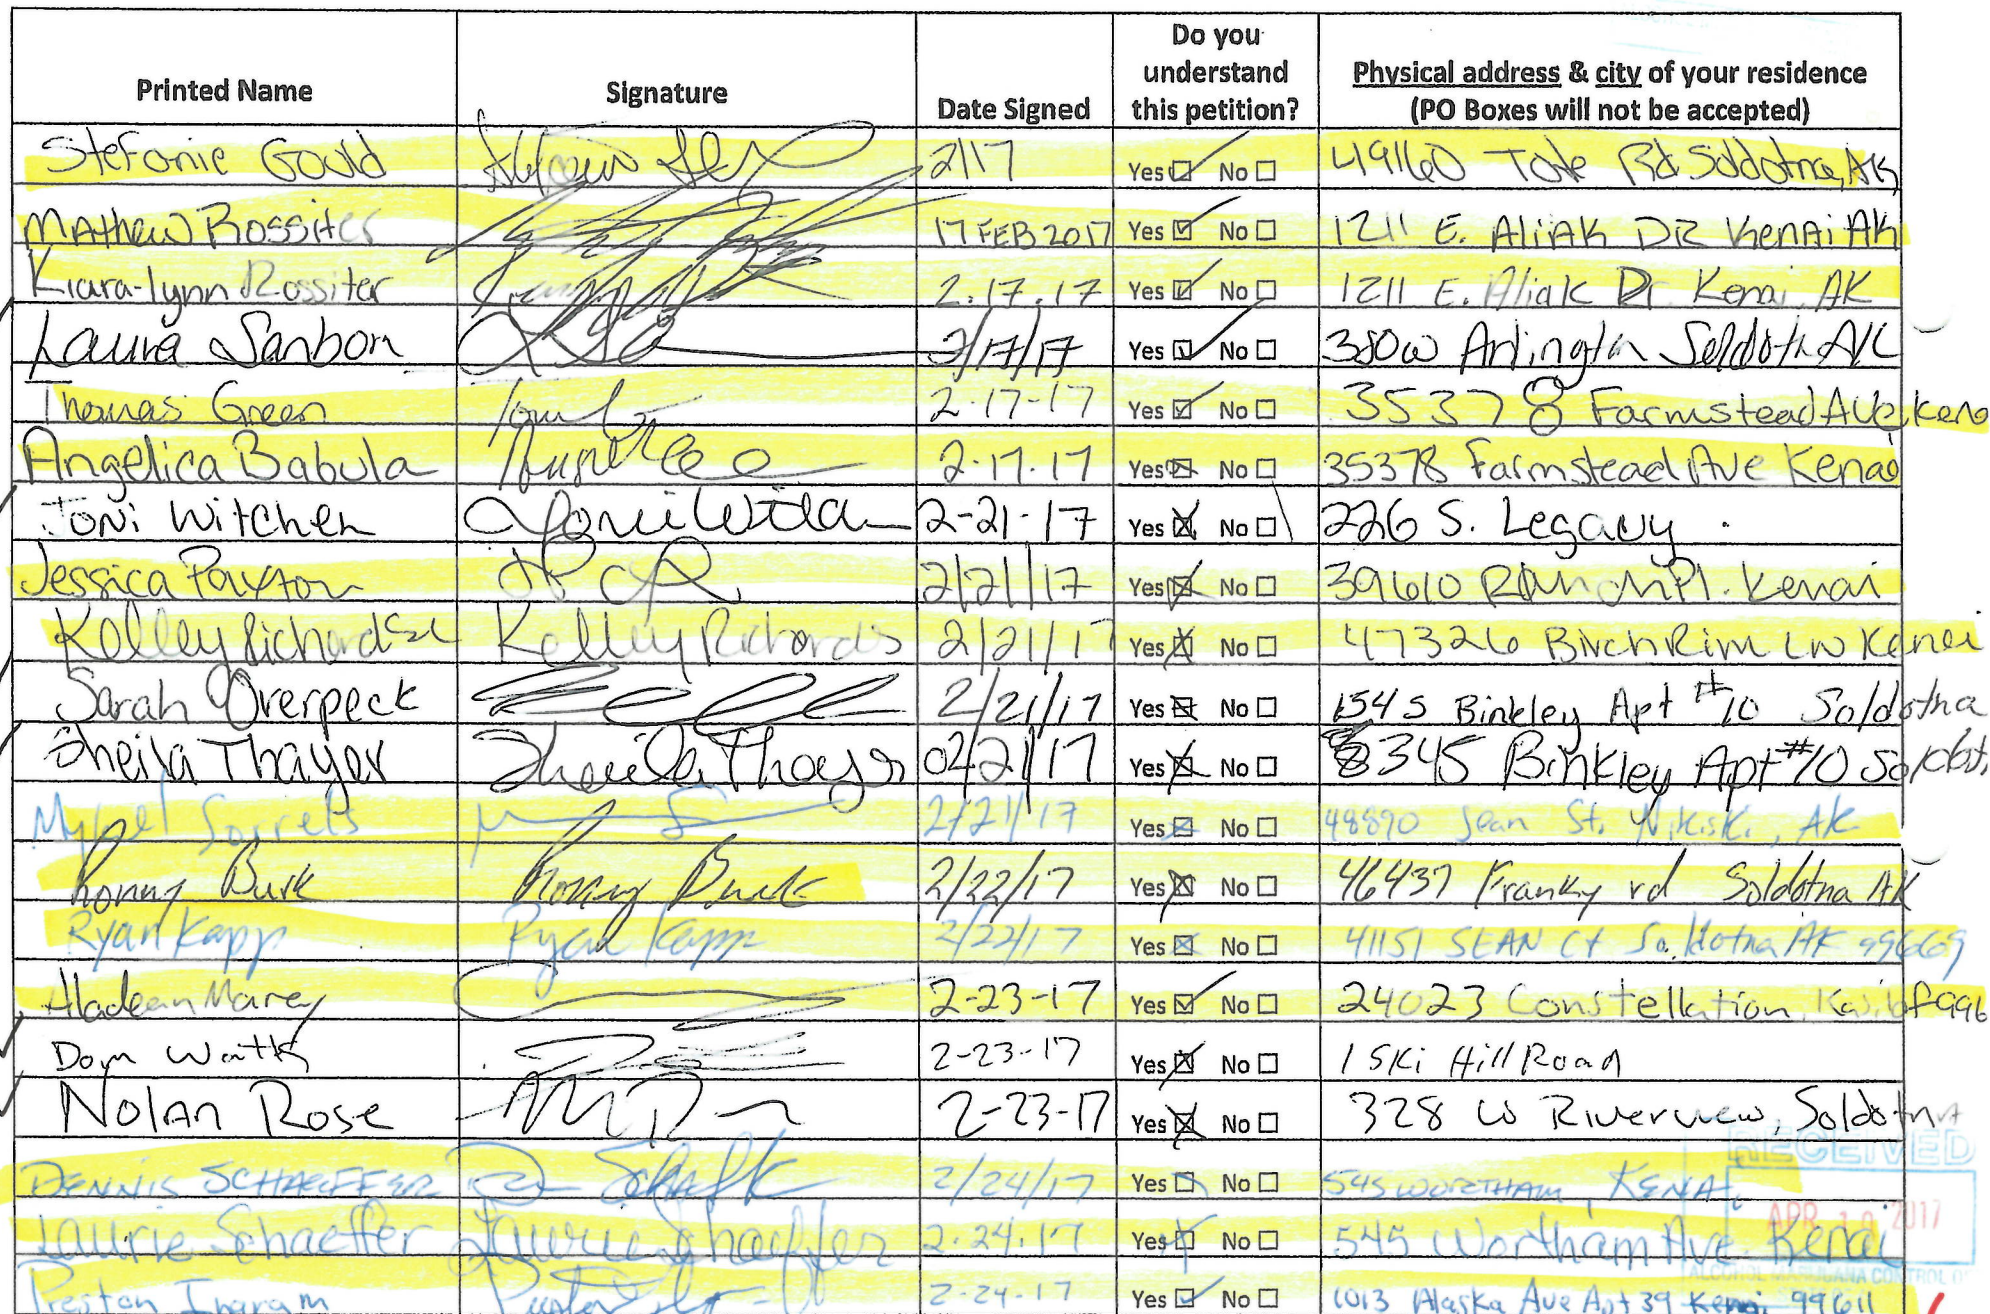 Printed Name Signature Date Signed Do you understand this petition? Physical address & city of your residence (PO Boxes will not be accepted)
Stefanie Gould 2/17 Yes No 49160 Tote Rd Soldotna, AK
Mathew Rossiter 17 FEB 2017 Yes No 1211 E. Aliak DR Kenai AK
Kiara-lynn Rossiter 2.17.17 Yes No 1211 E. Aliak Dr. Kenai AK
Laura Sanborn 2/17/17 Yes No 380 W Arlington Soldotna AK
Thomas Green Tom 2-17-17 Yes No 35378 Farmstead Ave, Kena
Angelica Babula 2-17-17 Yes No 35378 Farmstead Ave Kenai
Joni Witchen Joni 2-21-17 Yes No 226 S. Legacy
Jessica Paxton 2/21/17 Yes No 39610 Ranch Pl. Kenai
Kelley Richards Kelley Richards 2/21/17 Yes No 47326 Birch Rim LN Kenai
Sarah Overpeck 2/21/17 Yes No 154 S Binkley Apt #10 Soldotna
Sheila Thayer Sheila Thayer 02/21/17 Yes No 345 Binkley Apt #10 Soldot
Sorrels 2/21/17 Yes No 48890 Jean St. Nikiski, AK
Ronny Burk Ronny Burk 2/22/17 Yes No 46437 Franky rd Soldotna AK
Ryan Kapp Ryan Kapp 2/22/17 Yes No 41151 SEAN Ct Soldotna AK 99669
Hladean Marey 2-23-17 Yes No 24023 Constellation, Kasilof 996
Dom Watts 2-23-17 Yes No 1 Ski Hill Road
Nolan Rose 2-23-17 Yes No 328 W Riverview, Soldotna
DENNIS SCHAEFFER 2/24/17 Yes No 545 WORTHAM, KENAI
Laurie Schaeffer Laurie Schaeffer 2-24-17 Yes No 545 Wortham Ave. Kenai
Preston Ingram 2-24-17 Yes No 1013 Alaska Ave Apt 39 Kenai 99611
RECEIVED
APR 10 2017
ALCOHOL MARIJUANA CONTROL O